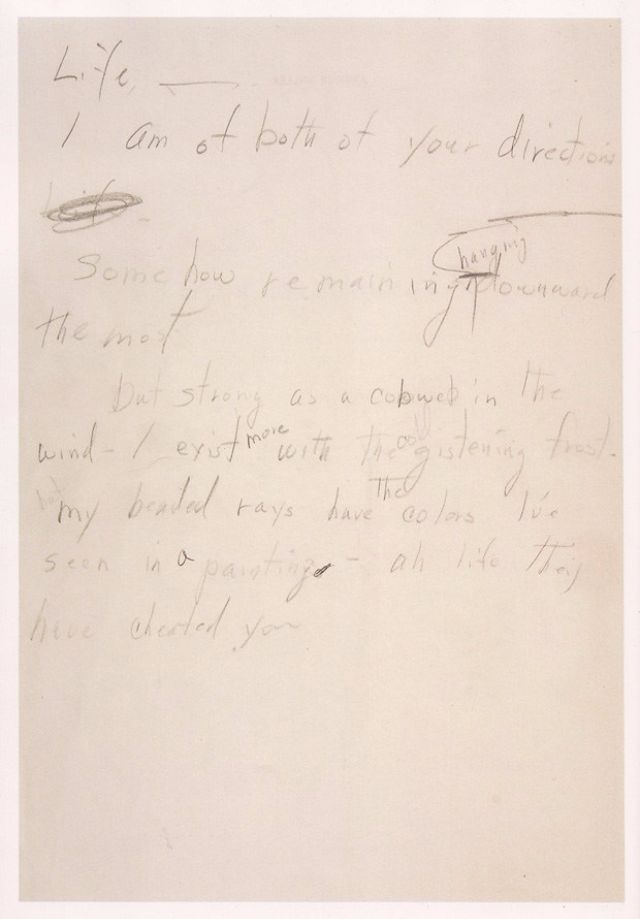 Life, ——
I am of both of your directions
Life
Somehow remaining hanging downward
the most
but strong as a cobweb in the
wind – I exist more with the cold gistening frost.
but my beaded rays have the colors I've
seen in a paintings – ah life they
have cheated you